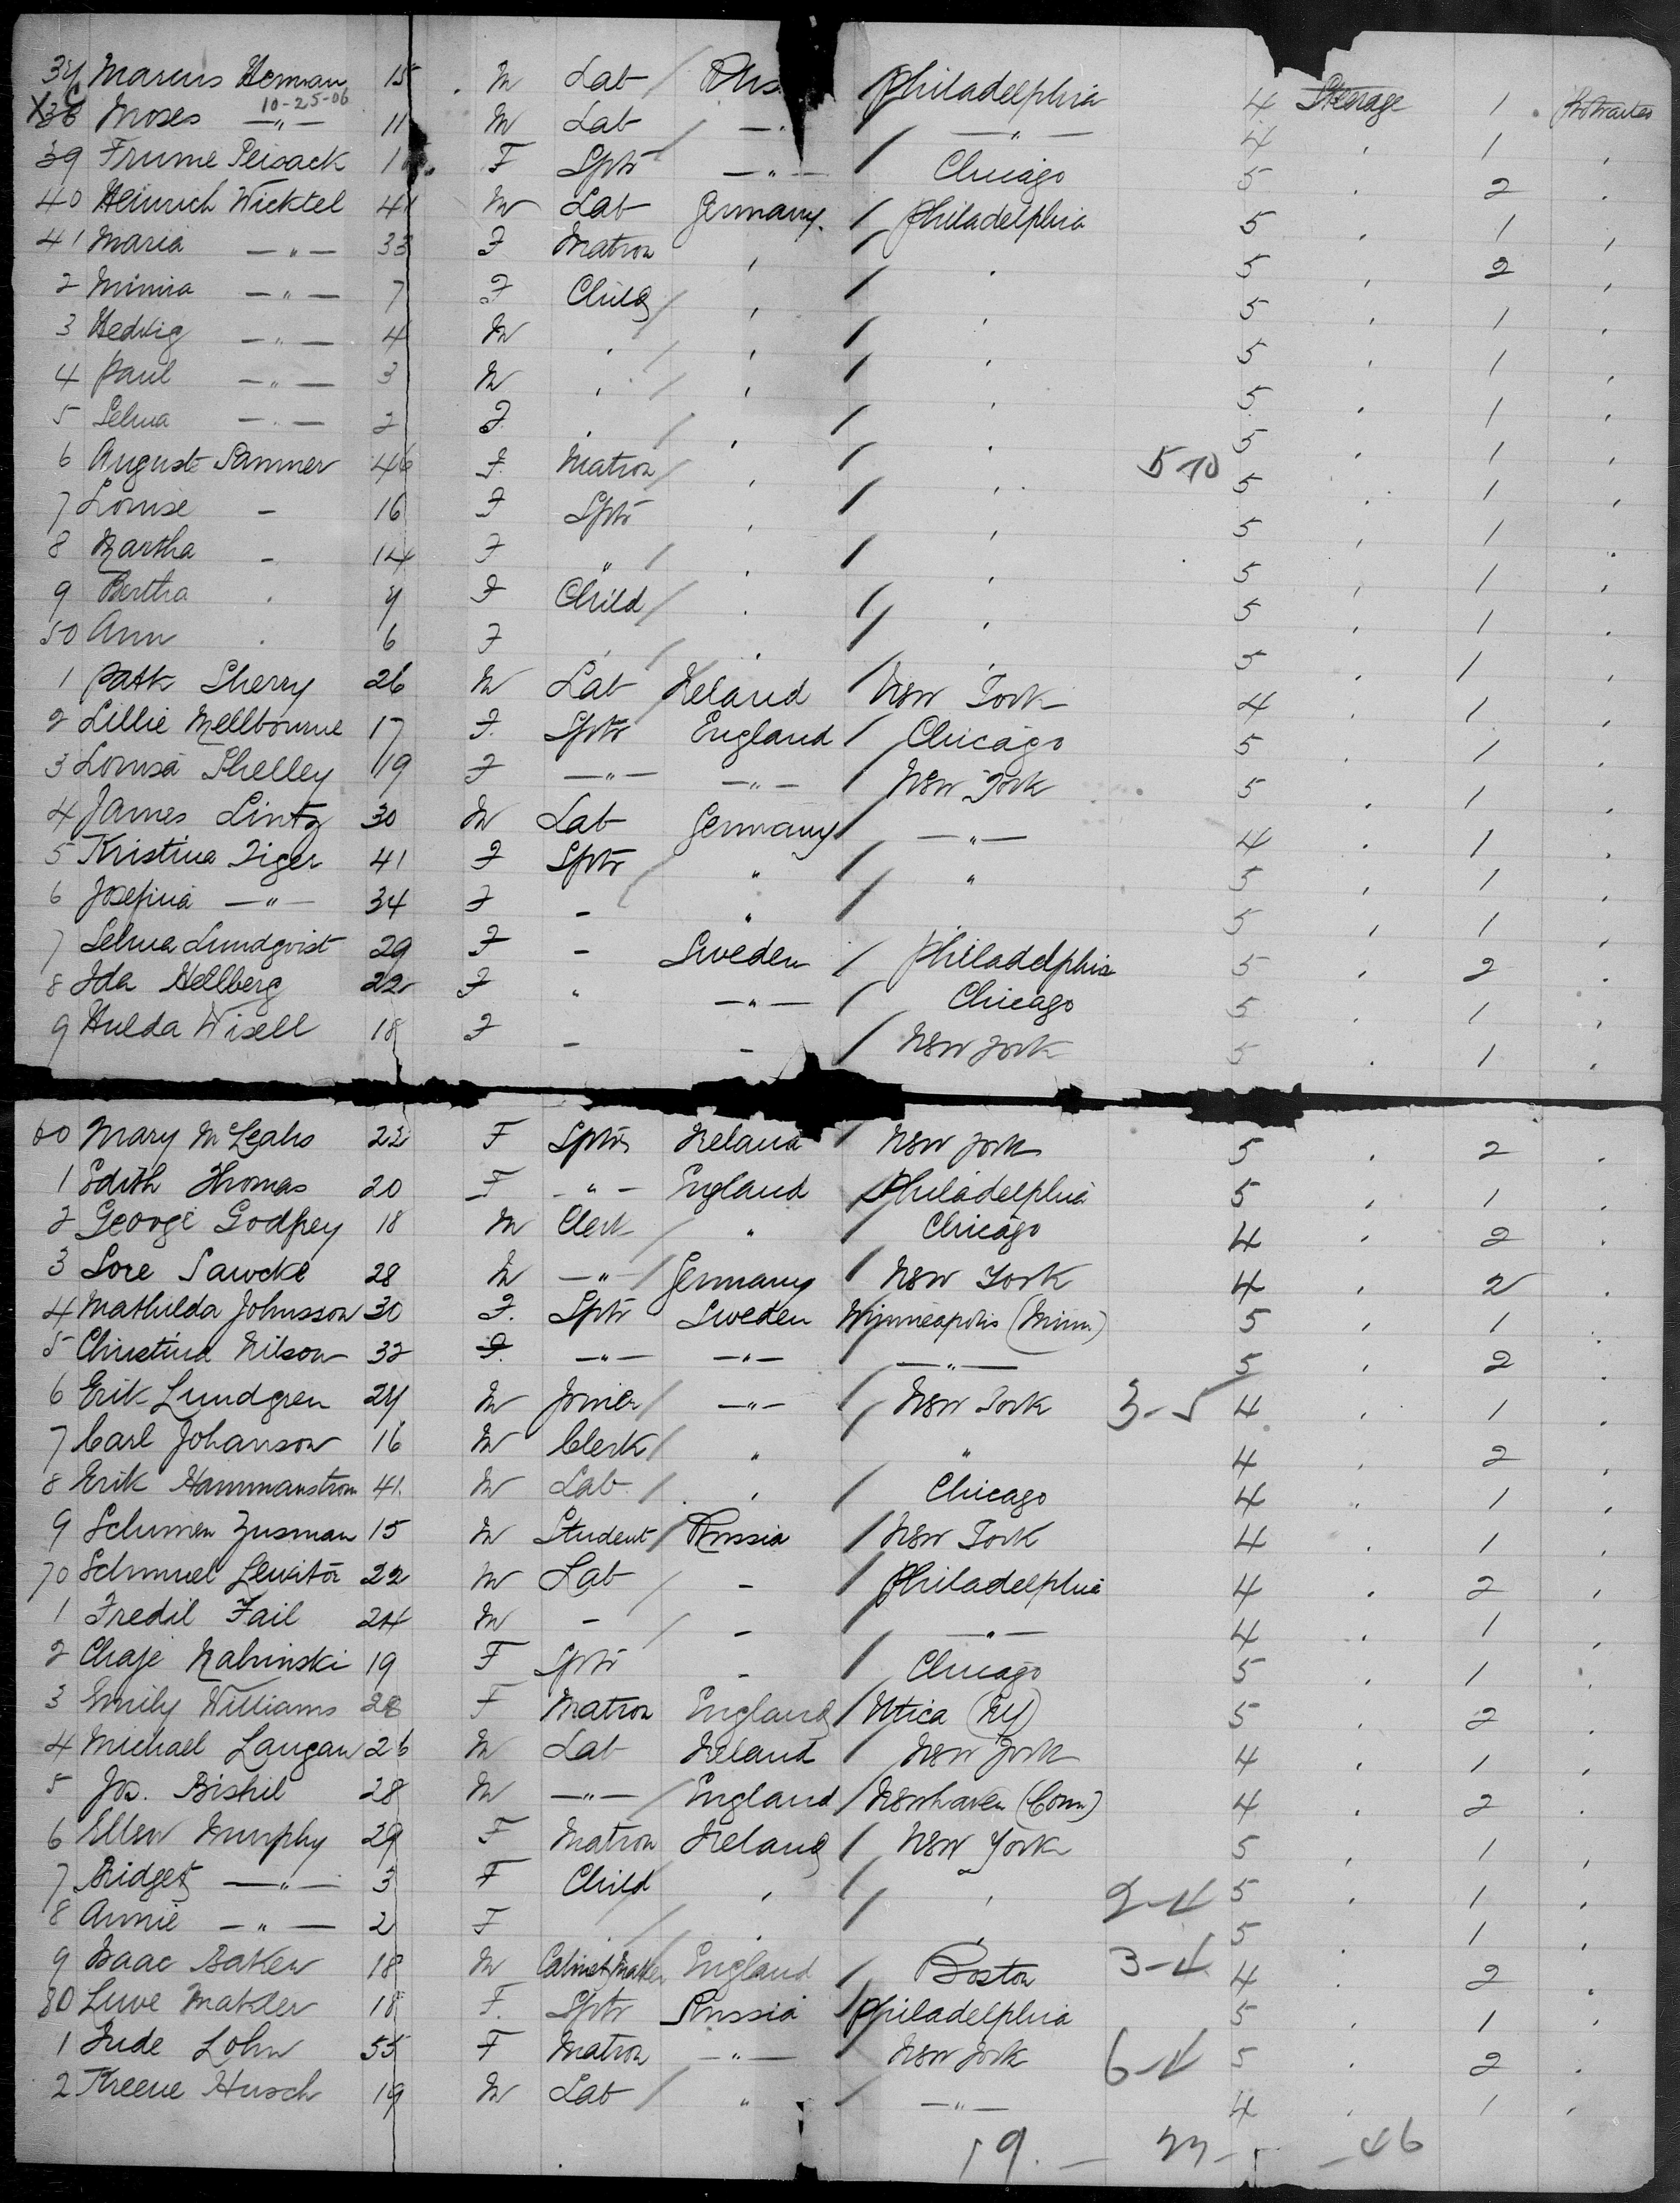 37 Marcus Herman 15 M Lab / Rus Philadelphia 4 Steerage 1 .
10-25-06
X38 Moses —"— 11 M Lab / —" / —"— 4 ' 1 '
39 Frume Peisack F Sptr —"— / Chicago 5 ' 2 '
40 Heinrich Wicktel 41 M Lab Germany. / Philadelphia 5 ' 1 '
41 Maria —"— 33 F Matron ' / ' 5 ' 2 '
2 Minna —"— 7 F Child / ' / ' 5 ' 1 '
3 Hedwig —"— 4 M ' / ' / ' 5 ' 1 '
4 Paul —"— 3 M ' / ' / ' 5 ' 1 '
5 Selma —"— 2 F ' / ' / ' 5 ' 1 '
6 August Sammer 46 F. Matron / ' / ' 5-10 5 ' 1 '
7 Louise - 16 F Sptr ' / ' 5 ' 1 '
8 Martha - 14 F " / ' / ' 5 ' 1 '
9 Bertha ' 9 F Child / ' / ' 5 ' 1 '
50 Ann ' 6 F ' / ' / ' 5 ' 1 '
1 Patk Sherry 26 M Lab Ireland / New York 4 ' 1 '
2 Lillie Mellbourne 17 F. Sptr England / Chicago 5 ' 1 '
3 Lousa Shelley 19 F —"— —"— / New York 5 ' 1 '
4 James Lintz 30 M Lab Germany / —"— 4 ' 1 '
5 Kristina Tiger 41 F Sptr / " / " 5 ' 1 '
6 Josefina —"— 34 F - " / 5 ' 1 '
7 Selma Lundqvist 29 F - Sweden / Philadelphia 5 ' 2 '
8 Ida Hellberg 22 F " —"— / Chicago 5 ' 1 '
9 Hulda Wisell 18 F - - / New York 5 ' 1 '
60 Mary McLeahs 22 F Sptr Ireland / New York 5 ' 2 '
1 Edith Thomas 20 F —"— England / Philadelphia 5 ' 1 '
2 George Godfrey 18 M Clerk / " / Chicago 4 ' 2 '
3 Lore Sawcke 28 M —"— / Germany / New York 4 ' 2 '
4 Mathilda Johnsson 30 F. Sptr Sweden Minneapolis (Minn) 5 ' 1 '
5 Christina Nilson 32 F. —"— —"— —"— 5 ' 2 '
6 Erik Lundgren 24 M Joiner / —"— / New York 3-5 4 ' 1 '
7 Carl Johanson 16 M Clerk / " " 4 ' 2 '
8 Erik Hammanstrom 41. M Lab / ' / Chicago 4 " 1 '
9 Schimen Zusman 15 M Student / Russia / New York 4 ' 1 '
70 Schmuel Lewitor 22 M Lab / - / Philadelphia 4 ' 2 '
1 Fredil Fail 24 M - / - / —"— 4 ' 1 '
2 Chaje Malinski 19 F Sptr - / Chicago 5 ' 1 '
3 Emily Williams 28 F Matron England / Utica (NY) 5 ' 2 '
4 Michael Langan 26 M Lab Ireland / New York 4 ' 1 '
5 Jos. Bishil 28 M —"— / England / Newhaven (Conn) 4 ' 2 '
6 Ellen Murphy 29 F Matron Ireland / New York 5 ' 1 '
7 Bridget —"— 3 F Child ' / ' 2-4 5 ' 1 '
8 Annie —"— 2 F / ' / ' 5 ' 1 '
9 Isaac Baker 18 M Cabinet Maker England / Boston 3-4 4 ' 2 '
80 Luve Makler 18 F. Sptr Russia / Philadelphia 5 ' 1 '
1 Jude Lohn 55 F Matron —"— / New York 6-4 5 ' 2 '
2 Kreene Husch 19 M Lab / " / —"— 4 ' 1 '
19. — — 46